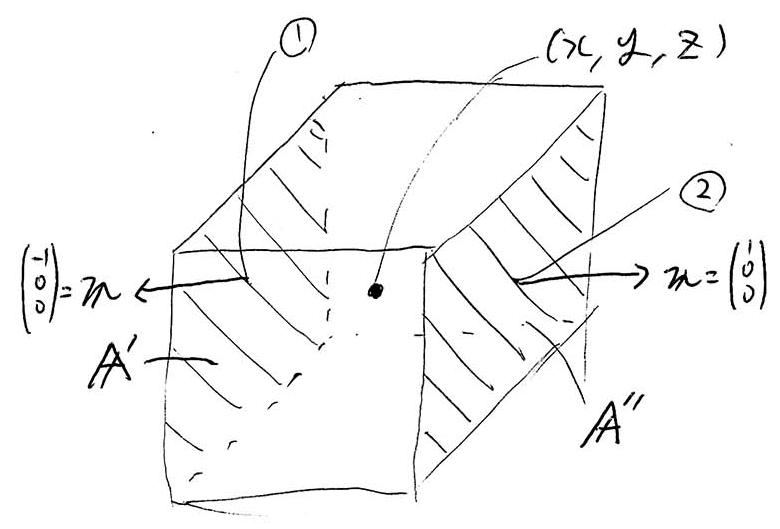 ①
(x, y, z)
②
(-1 0 0) = n
n = (1 0 0)
A'
A''